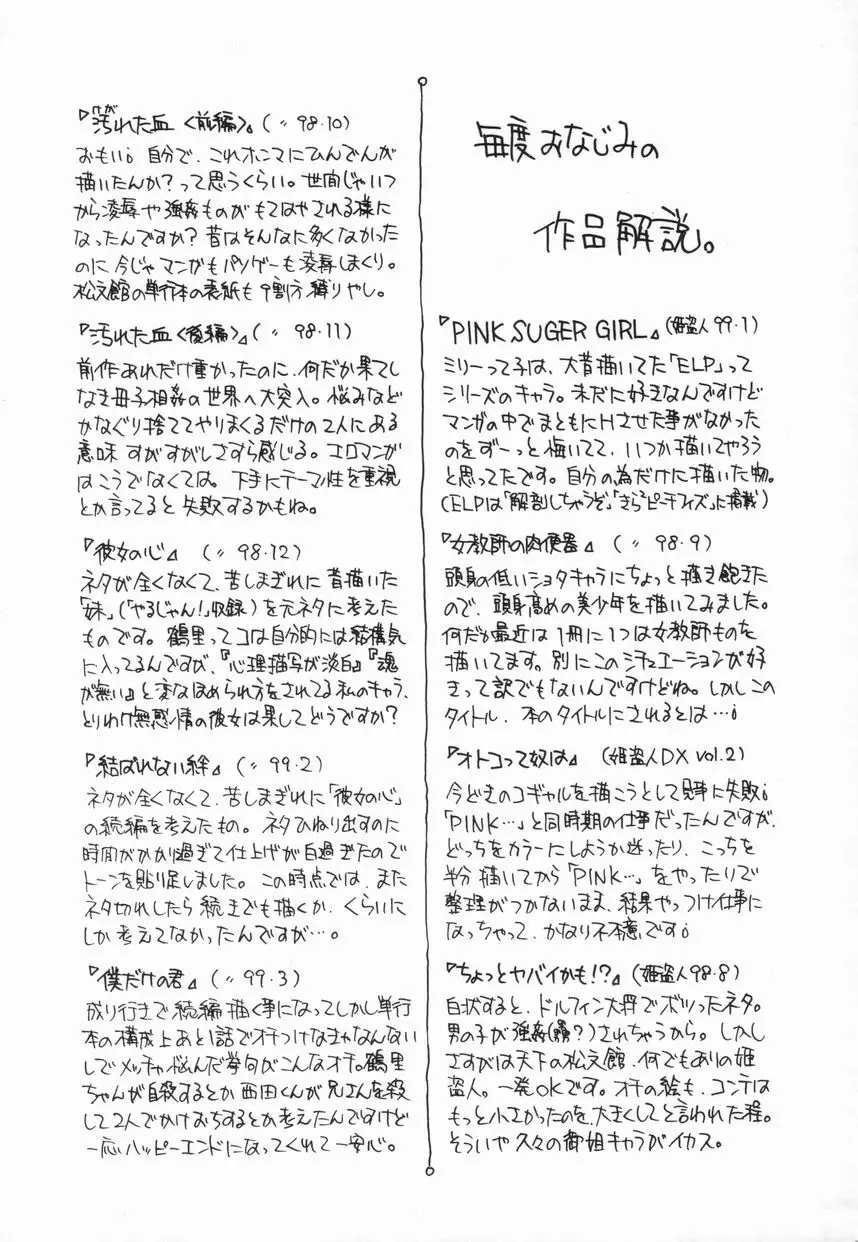 毎度おなじみの
作品解説。
『PINK SUGER GIRL』(姫盗人99・1)
ミリーって子は、大昔描いてた「ELP」って
シリーズのキャラ。未だに好きなんですけど
マンガの中でまともにHさせた事がなかった
のをずーっと悔いてて、いつか描いてやろう
と思ってたです。自分の為だけに描いた物。
(ELPは「解剖しちゃうぞ」「きらきらピーチフィズ」に掲載)
『女教師の肉便器』(〃 98・9)
頭身の低いショタキャラにちょっと描き飽きた
ので、頭身高めの美少年を描いてみました。
何だか最近は1冊に1つは女教師ものを
描いてます。別にこのシチュエーションが好
きって訳でもないんですけどね。しかしこの
タイトル、本のタイトルにされるとは…。
『オトコって奴は』(姫盗人DX vol.2)
今どきのコギャルを描こうとして見事に失敗。
「PINK…」と同時期の仕事だったんですが、
どっちをカラーにしようか迷ったり、こっちを
半分描いてから「PINK…」をやったりで
整理がつかないまま、結果やっつけ仕事に
なっちゃって、かなり不本意です。
『ちょっとヤバイかも!?』(姫盗人98・8)
白状すると、ドルフィン大将でボツったネタ。
男の子が強姦(?)されちゃうから。しかし
さすがは天下の松文館、何でもありの姫
盗人。一発OKです。オチの絵も、コンテは
もっと小さかったのを、大きくしてと言われた程。
そういや久々の御姐キャラがイカス。
『汚れた血〈前編〉』(〃 98・10)
けが
おもい。自分で、これホンマにひんでんが
描いたんか?って思うくらい。世間じゃいつ
から凌辱や強姦ものがもてはやされる様に
なったんですか?昔はそんなに多くなかった
のに今じゃマンガもパソゲーも凌辱しまくり。
松文館の単行本の表紙も9割方縛りやし。
『汚れた血〈後編〉』(〃 98・11)
前作あれだけ重かったのに、何だか果てし
なき母子相姦の世界へ大突入。悩みなど
かなぐり捨ててやりまくるだけの2人にある
意味すがすがしさすら感じる。エロマンガ
はこうでなくては。下手にテーマ性を重視
とか言ってると失敗するかもね。
『彼女の心』(〃 98・12)
ネタが全くなくて、苦しまぎれに昔描いた
「妹」(「やるじゃん!」収録)を元ネタに考えた
ものです。鶴里ってコは自分的には結構気
に入ってるんですが、『心理描写が淡白』『魂
が無い』と変なほめられ方をされてる私のキャラ、
とりわけ無感情の彼女は果してどうですか?
『結ばれない絆』(〃 99・2)
ネタが全くなくて、苦しまぎれに「彼女の心」
の続編を考えたもの。ネタひねり出すのに
時間がかかり過ぎて仕上げが白過ぎたので
トーンを貼り足しました。この時点では、また
ネタ切れしたら続きでも描くか、くらいに
しか考えてなかったんですが…。
『僕だけの君』(〃 99・3)
成り行きで続編描く事になってしかし単行
本の構成上あと1話でオチつけなきゃなんない
しでメッチャ悩んだ挙句がこんなオチ。鶴里
ちゃんが自殺するとか西田くんが兄さんを殺
して2人でかけおちするとか考えたんですけど
一応ハッピーエンドになってくれて一安心。